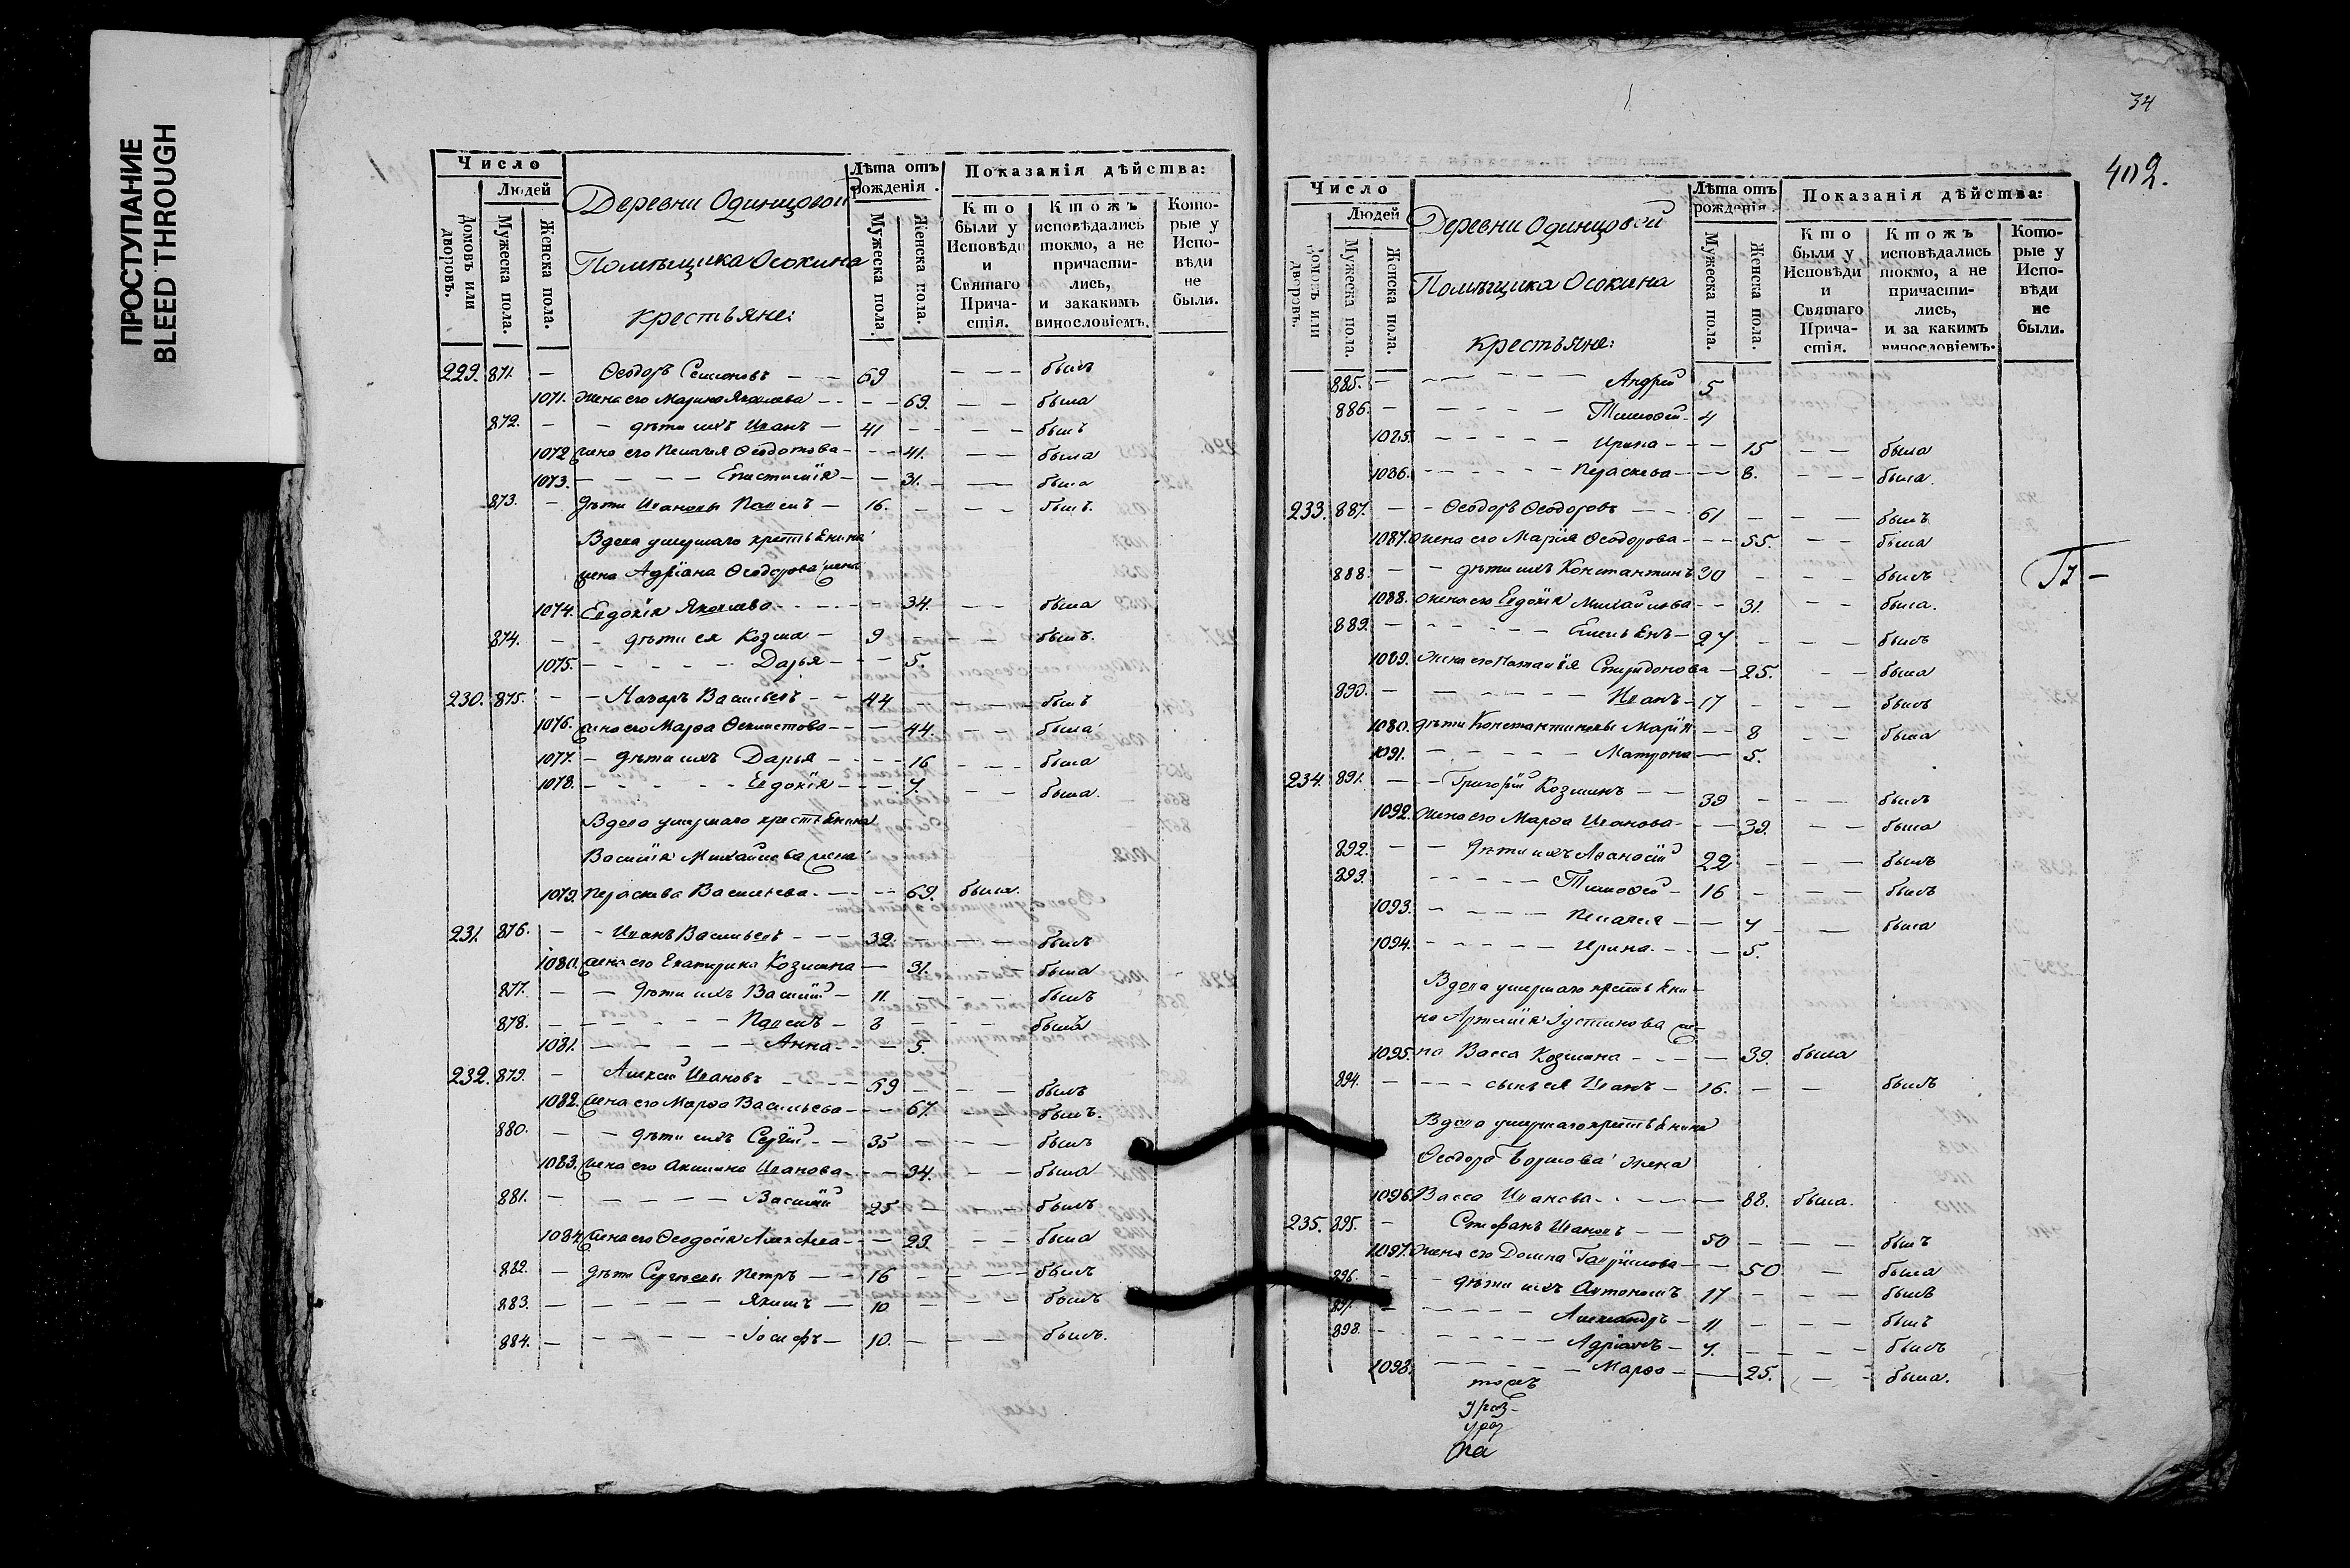 ПРОСТУПАНИЕ
BLEED THROUGH
Число
Людей
Домовъ или дворовъ.
Мужеска пола.
Женска пола.
Деревни Одинцовой
Помѣщика Осокина
крестьяне:
Лѣта отъ рожденія.
Мужеска пола.
Женска пола.
Показанія дѣйства:
Кто были у Исповѣди и Святаго Причастія.
Ктожъ исповѣдались токмо, а не причастились, и закакимъ винословіемъ.
Которые у Исповѣди не были.
229. 871. — Ѳеодоръ Семионовъ — — 69 — — — былъ
1071. Жена его Марина Яковлева — — — 69. — — была
872. — — дѣти ихъ Иванъ — 41 — — — — былъ
1072 жена его Пелагея Ѳеодотова — — — 41. — — была
1073. — — — — Епистимія — — 31. — — была
873. — дѣти Ивановы Павелъ — 16. — — — былъ.
Вдова умершаго крестьянина
Адріана Ѳеодорова жена
1074. Евдокія Яковлева — — — — 34. — — была
874. — — дѣти ея Козма — 9 — — — былъ.
1075. — — — — — Дарья — — — 5.
230. 875. — — Назаръ Васильевъ — — 44 — — — — былъ
1076. жена его Марѳа Ѳеоктистова — — — 44. — — была
1077. — дѣти ихъ Дарья — — — — 16 — — — была
1078. — — — — — Евдокія — — — 7. — — была.
Вдова умершаго крестьянина
Василія Михайлова жена
1079. Параскева Васильева — — — 69. была.
231. 876. — — Иванъ Васильевъ — — — 32 — — — — былъ
1080. жена его Екатерина Козмина — 31. — — — была
877. — — дѣти ихъ Василій — 11. — — — былъ
878. — — — — — Павелъ — 8 — — — былъ
1081. — — — — — Анна — — — 5.
232. 879. — Алексій Ивановъ — — — — 69 — — — былъ
1082. жена его Марѳа Васильева — — — 67. — — былъ.
880. — — дѣти ихъ Сергій — — 35 — — — былъ
1083. жена его Акилина Иванова — — — 34. — — была
881. — — — — — Василій 25 — — — былъ
1084. жена его Ѳеодосія Алексѣева — — 23. — — была
882. — дѣти Сергѣевы Петръ — — 16 — — — — былъ
883. — — — — — Якимъ — 10 — — — былъ
884. — — — — — — Іосифъ — 10. — — — былъ.
34
402.
Число
Людей
Домовъ или дворовъ.
Мужеска пола.
Женска пола.
Деревни Одинцовой
Помѣщика Осокина
крестьяне:
Лѣта отъ рожденія.
Мужеска пола.
Женска пола.
Показанія дѣйства:
Кто были у Исповѣди и Святаго Причастія.
Ктожъ исповѣдались токмо, а не причастились, и за какимъ винословіемъ.
Которые у Исповѣди не были.
885. — — — — — Андрей 5
886. — — — — — Тимоѳей — 4
1085. — — — — — Ирина — — — 15 — — была
1086. — — — — — — Параскева — — — 8. — — — была.
233. 887. — — Ѳеодоръ Ѳеодоровъ — — — 61 — — — былъ
1087. Жена его Марія Ѳеодорова — — — 55. — — была
888. — — дѣти ихъ Константинъ 30 — — — былъ
1088. Жена его Евдокія Михайлова — — 31. — — была.
889. — — — — — Емельянъ — 27 — — — былъ
1089. Жена его Наталія Спиридонова — 25. — — была
890. — — — — — — Иванъ — 17 — — — былъ
1080. дѣти Константиновы Марія — — 8 — — была
1091. — — — — — Матрона — 5.
234. 891. — — Григорій Козминъ — — 39 — — — былъ
1092. Жена его Марѳа Иванова — — — 39. — — была
892. — — дѣти ихъ Аѳанасій 22 — — — былъ
893. — — — — — Тимоѳей — 16 — — — былъ
1093. — — — — Пелагея — — 7 — была
1094. — — — — — Ирина — — — 5.
Вдова умершаго крестьяни-
на Артемія Іустинова же-
1095. на Васса Козмина — — — — 39. была
894. — — — — сынъ ея Иванъ — 16. — — былъ
Вдова умершаго крестьянина
Ѳеодора жена
1096. Васса Иванова — — — — 88. была.
235. 895. — Стефанъ Ивановъ — — 50 — — — былъ
1097. Жена его Домна Гавріилова — — 50 — была
896. — — дѣти ихъ Автономъ 17 — — — былъ
897. — — — — Александръ — 11 — — — былъ
898. — — — — — Адріанъ — 7. — — — — былъ
1098. — — — — Марѳа — — 25. — — была.